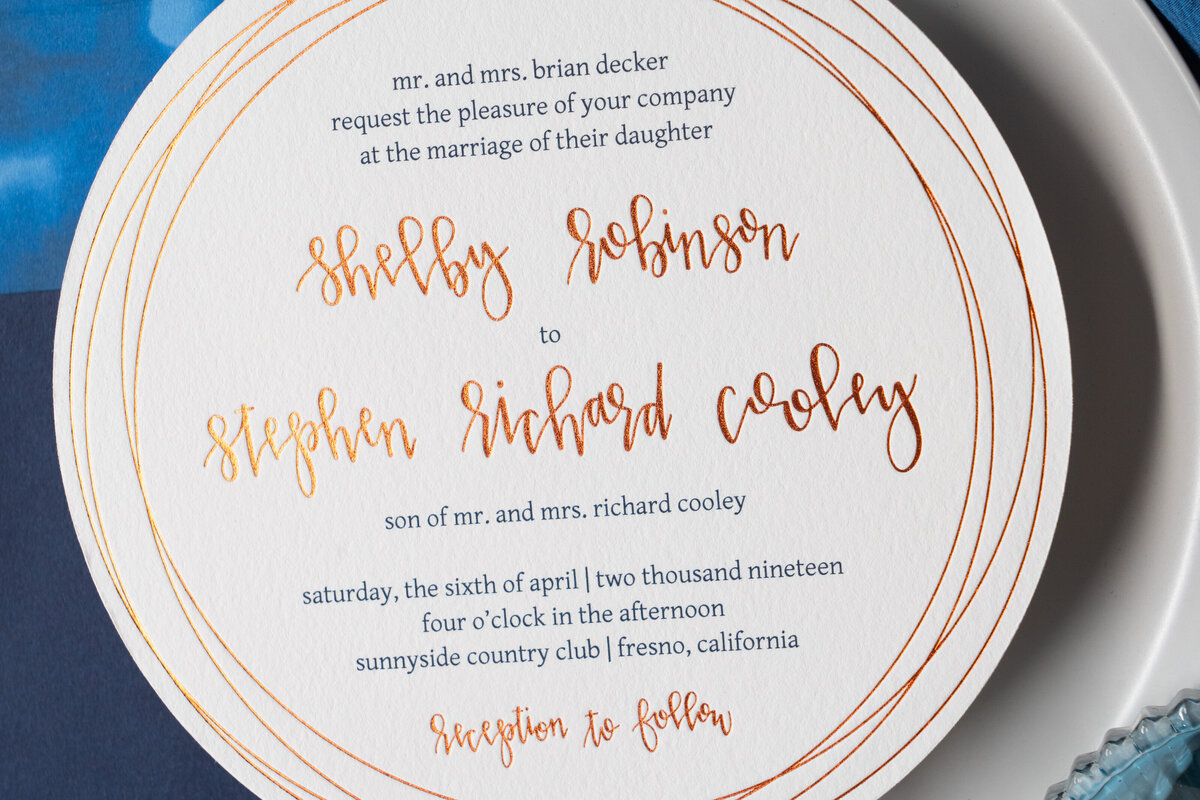 mr. and mrs. brian decker
request the pleasure of your company
at the marriage of their daughter
shelby robinson
to
stephen richard cooley
son of mr. and mrs. richard cooley
saturday, the sixth of april | two thousand nineteen
four o’clock in the afternoon
sunnyside country club | fresno, california
reception to follow